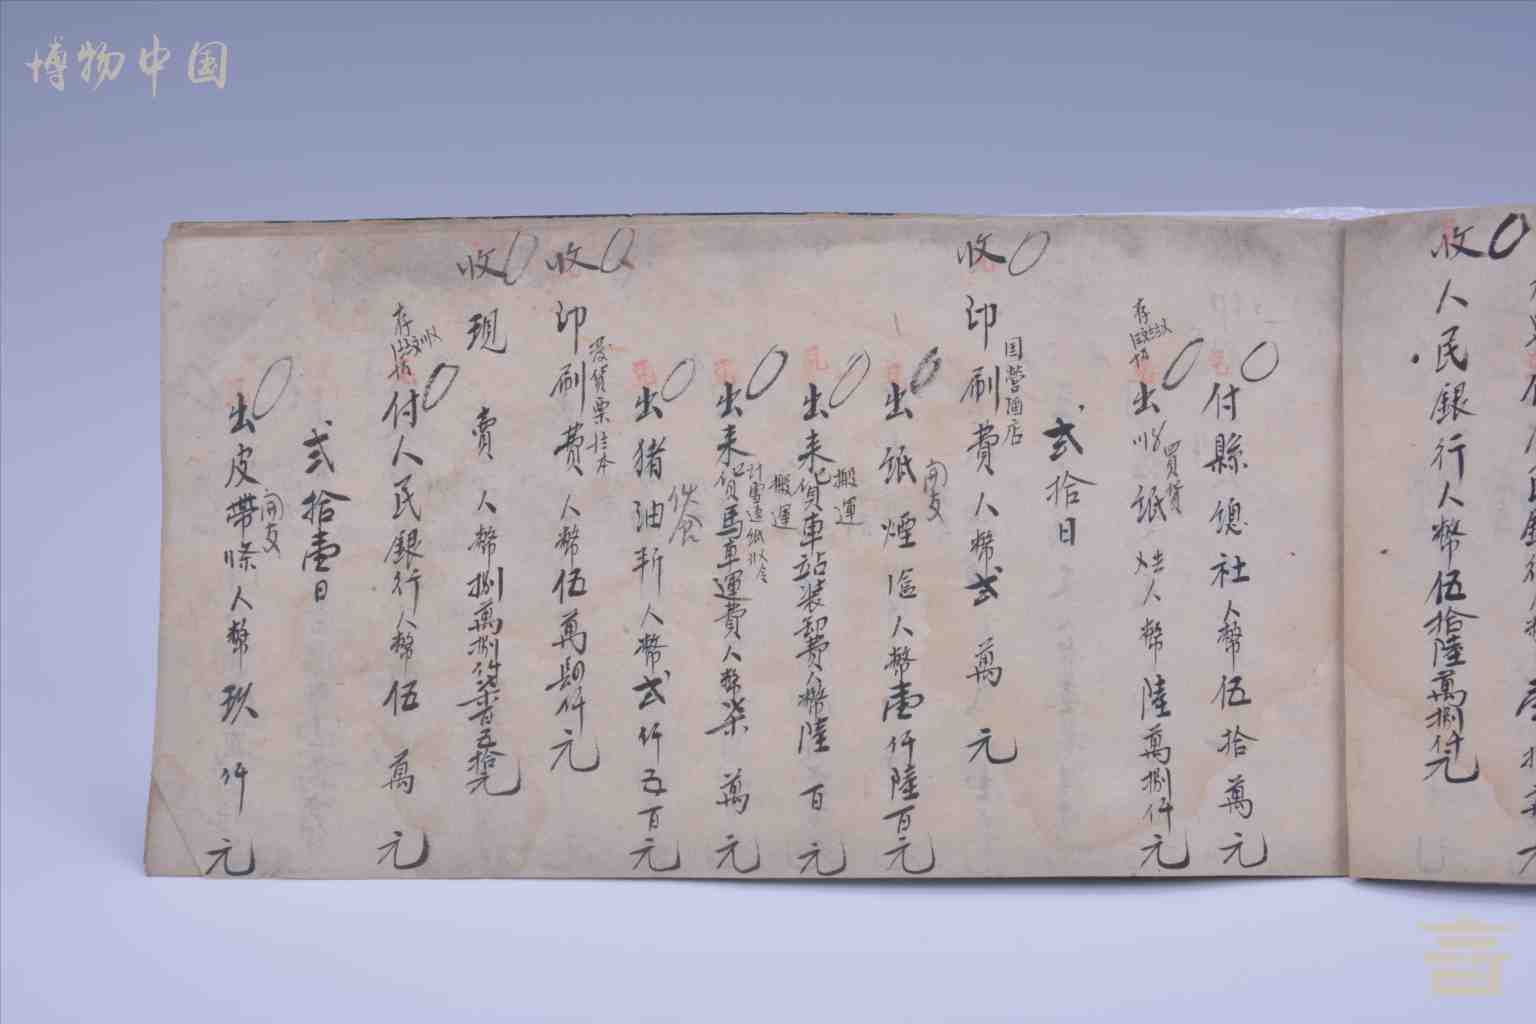 博物中国
收人民銀行人幣伍拾陸萬捌仟元
付縣總社人幣伍拾萬元
出 紙 人幣陸萬捌仟元
買貨
弍拾日
收印刷費人幣弍萬元
国營酒店
出紙煙 人幣壹仟陸百元
開支
出来貨車站装卸費人幣陸百元
搬運
出来貨馬車運費人幣柒萬元
搬運
出猪油 人幣弍仟五百元
伙食
收印刷費人幣伍萬 仟元
發貨票 本
收現賣人幣捌萬捌仟柒百五拾元
付人民銀行人幣伍萬元
弍拾壹日
出皮帶條人幣玖仟元
開支